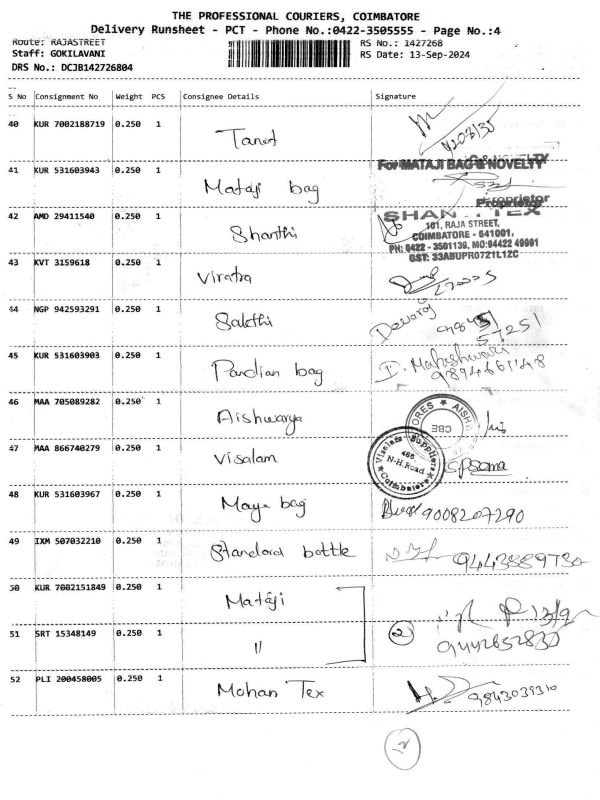 THE PROFESSIONAL COURIERS, COIMBATORE
Delivery Runsheet - PCT - Phone No.:0422-3505555 - Page No.:4
Route: RAJASTREET
RS No.: 1427268
Staff: GOKILAVANI
RS Date: 13-Sep-2024
DRS No.: DCJB142726804
S No Consignment No Weight PCS Consignee Details Signature
40 KUR 7002188719 0.250 1
41 KUR 531603943 0.250 1 Mataji bag
For MATAJI BAG & NOVELTY
Proprietor
42 AMD 29411540 0.250 1 Shanthi
TEX
101, RAJA STREET,
COIMBATORE - 641001.
PH: 0422 - 3501139, MO:94422 49991
GST: 33ABUPR0721L1ZC
43 KVT 3159618 0.250 1
44 NGP 942593291 0.250 1 Sakthi Devaraj
57251
45 KUR 531603903 0.250 1 Pandian bag D. Maheshwari
9894661148
46 MAA 705089282 0.250 1 Aishwarya
CBE
47 MAA 866740279 0.250 1 Visalam
466,
N-H.Road
Coimbatore
48 KUR 531603967 0.250 1 Maya bag 9008207290
49 IXM 507032210 0.250 1 Standard bottle 9443889730
50 KUR 7002151849 0.250 1 Mataji 13/9
51 SRT 15348149 0.250 1 " 2 9442652830
52 PLI 200458005 0.250 1 Mohan Tex 9843039310